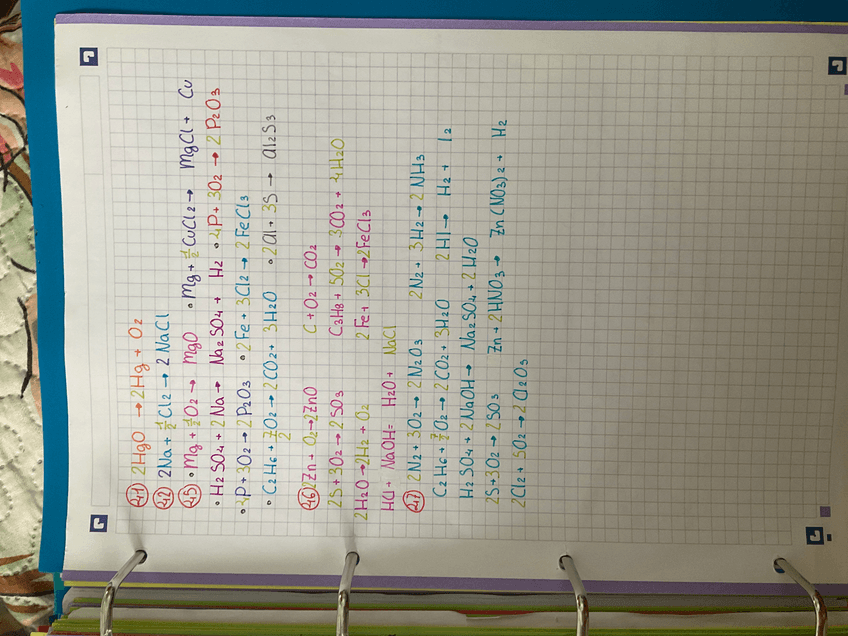 41 2HgO → 2Hg + O2
42 2Na + 1/2 Cl2 → 2 NaCl
45 • Mg + 1/2 O2 → MgO • Mg + 1/2 CuCl2 → MgCl + Cu
• H2SO4 + 2Na → Na2SO4 + H2 • 4P + 3O2 → 2 P2O3
• 4P + 3O2 → 2 P2O3 • 2Fe + 3Cl2 → 2 FeCl3
• C2H6 + 7/2 O2 → 2CO2 + 3H2O • 2Al + 3S → Al2S3
46 2Zn + O2 → 2ZnO C + O2 → CO2
2S + 3O2 → 2 SO3 C3H8 + 5O2 → 3CO2 + 4H2O
2H2O → 2H2 + O2 2Fe + 3Cl → 2FeCl3
HCl + NaOH = H2O + NaCl
47 2N2 + 3O2 → 2 N2O3 2N2 + 3H2 → 2 NH3
C2H6 + 7/2 O2 → 2 CO2 + 3H2O 2HI → H2 + I2
H2SO4 + 2NaOH → Na2SO4 + 2H2O
2S + 3O2 → 2SO3 Zn + 2HNO3 → Zn(NO3)2 + H2
2Cl2 + 5O2 → 2Cl2O3